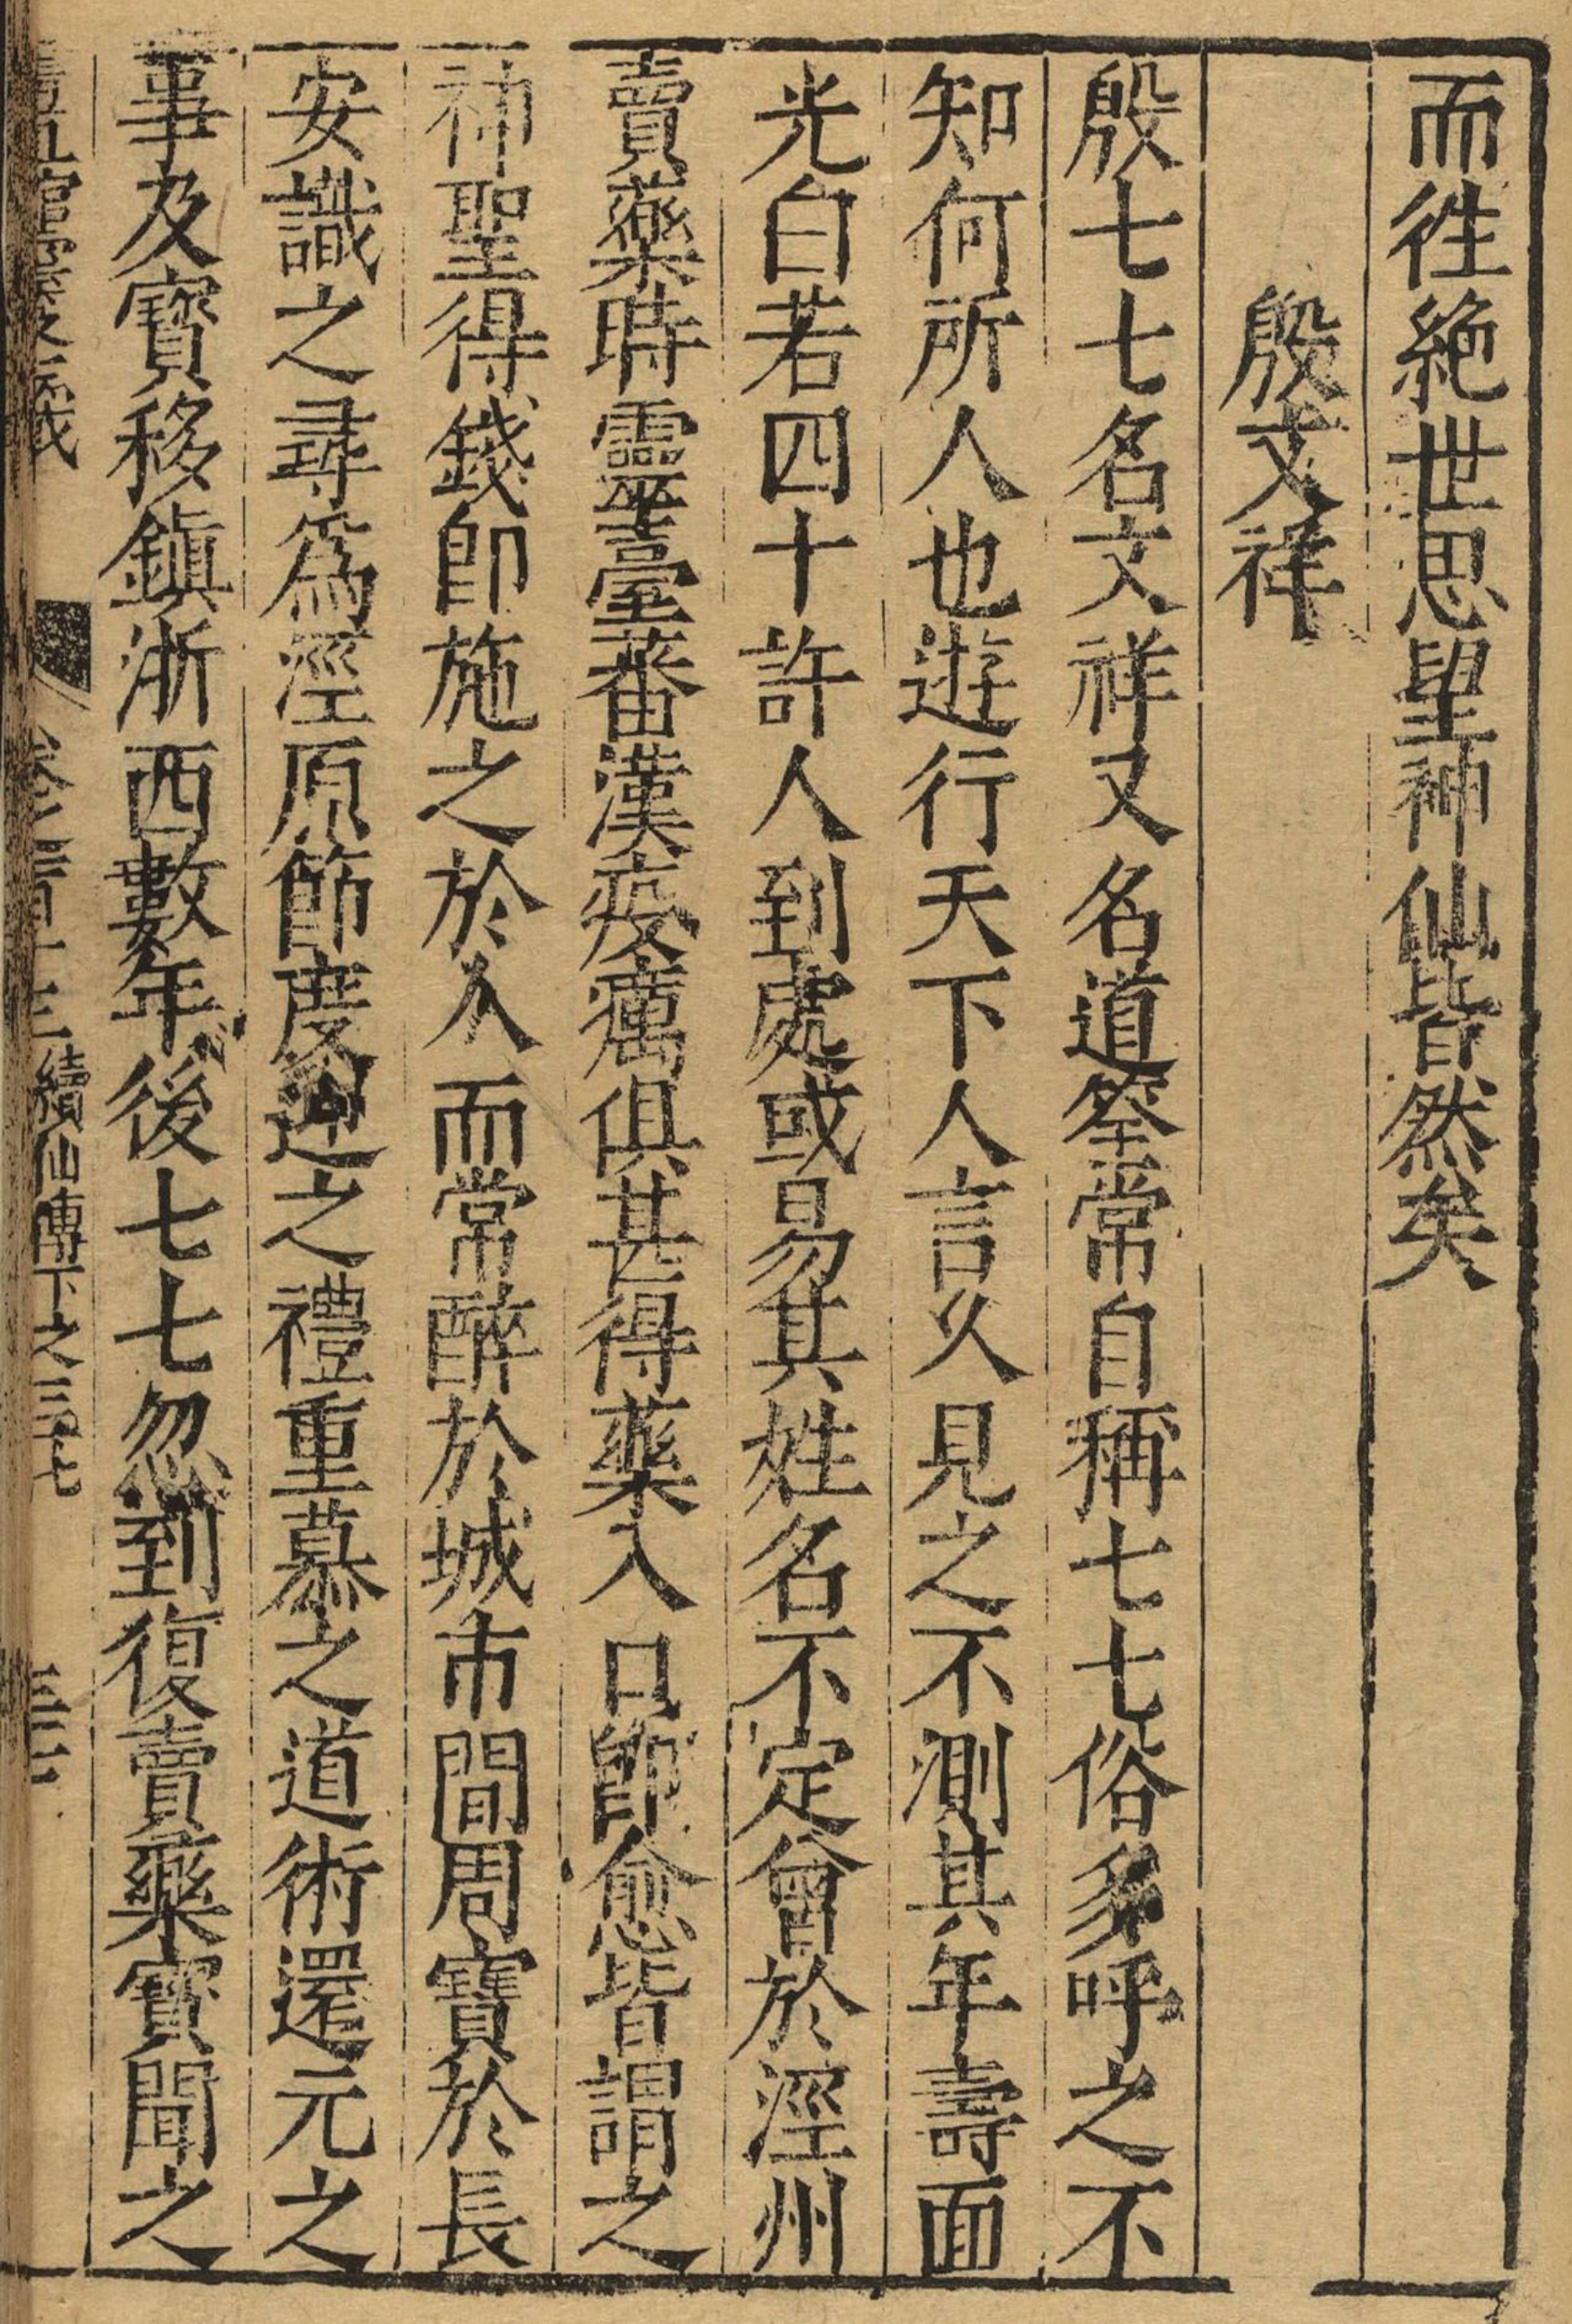 而徃絶世思望神仙皆然矣
殷文祥
殷七七名文祥又名道筌常自稱七七俗多呼之不
知何所人也遊行天下人言久見之不測其年壽面
光白若四十許人到處或易其姓名不定曾於涇州
賣藥時靈臺蕃漢疫癘俱甚得藥入口即愈皆謂之
神聖得錢即施之於人而常醉於城市間周寳於長
安識之尋爲涇原節度迎之禮重慕之道術還元之
事及寳移鎮浙西數年後七七忽到復賣藥寳聞之
卷之一百十三 續仙傳下之三 七